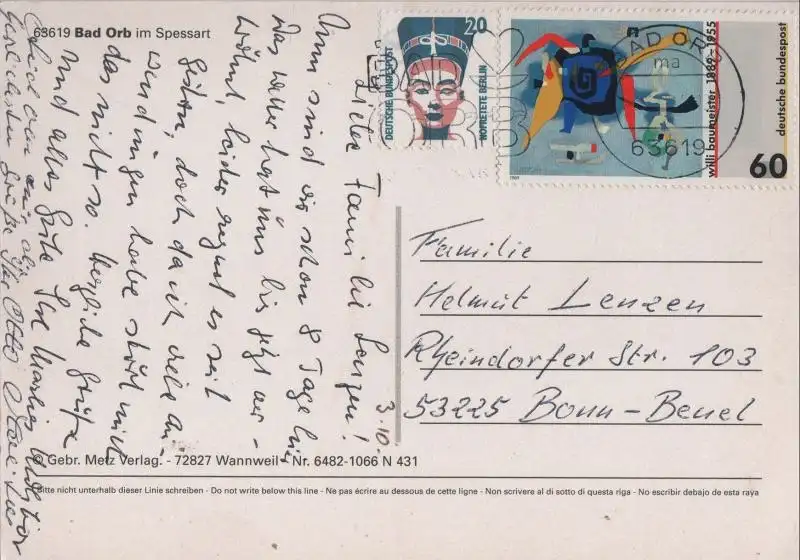 63619 Bad Orb im Spessart
20
DEUTSCHE BUNDESPOST
NOFRETETE BERLIN
BAD ORB
ma
63619
willi baumeister 1889-1955
deutsche bundespost
60
1989
3.10.
Liebe Familie Lenzen!
Nun sind wir schon 8 Tage hier
Das Wetter hat uns bis jetzt ver-
wöhnt, leider regnet es seit
gestern, doch da ich viele An-
wendungen habe stört mich
das nicht so. Herzliche Grüße
und alles Gute Ihre
Familie
Helmut Lenzen
Rheindorfer Str. 103
53225 Bonn-Beuel
© Gebr. Metz Verlag. - 72827 Wannweil - Nr. 6482-1066 N 431
Bitte nicht unterhalb dieser Linie schreiben - Do not write below this line - Ne pas écrire au dessous de cette ligne - Non scrivere al di sotto di questa riga - No escribir debajo de esta raya